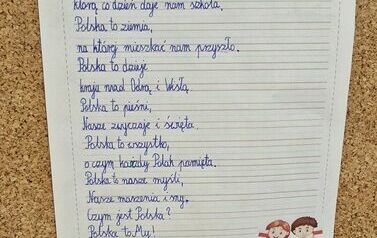 którą co dzień daje nam szkoła.
Polska to ziemia,
na której mieszkać nam przyszło.
Polska to dzieje
kraju nad Odrą i Wisłą,
Polska to pieśni,
Nasze zwyczaje i święta,
Polska to wszystko,
o czym każdy Polak pamięta.
Polska to nasze myśli,
Nasze marzenia i sny.
Czym jest Polska?
Polska to My!